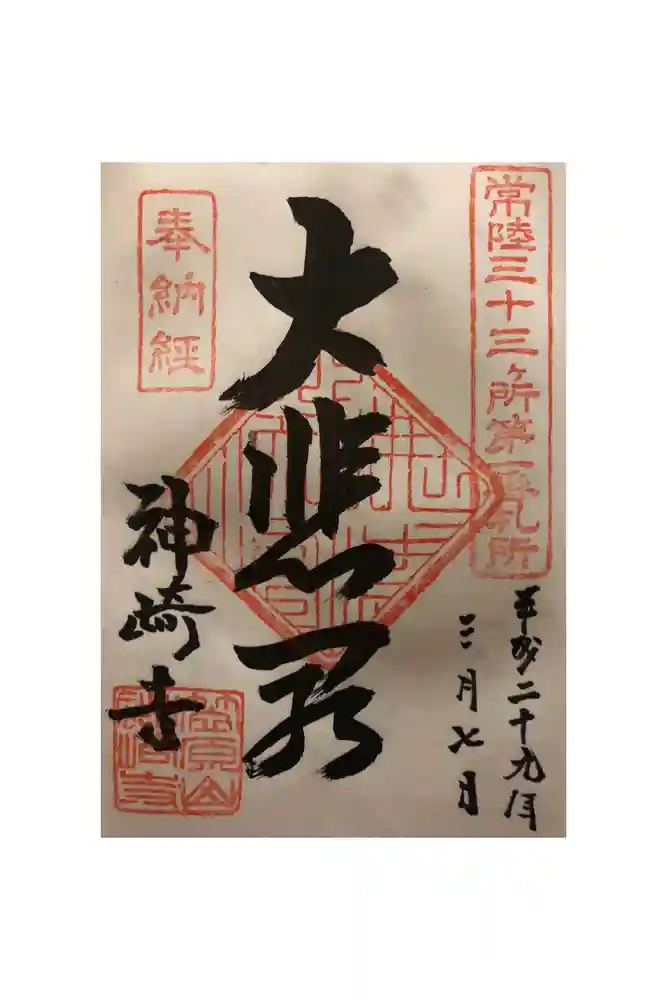 常陸三十三ヶ所第一番札所
平成二十九年
三月七日
大悲殿
奉納経
神崎寺